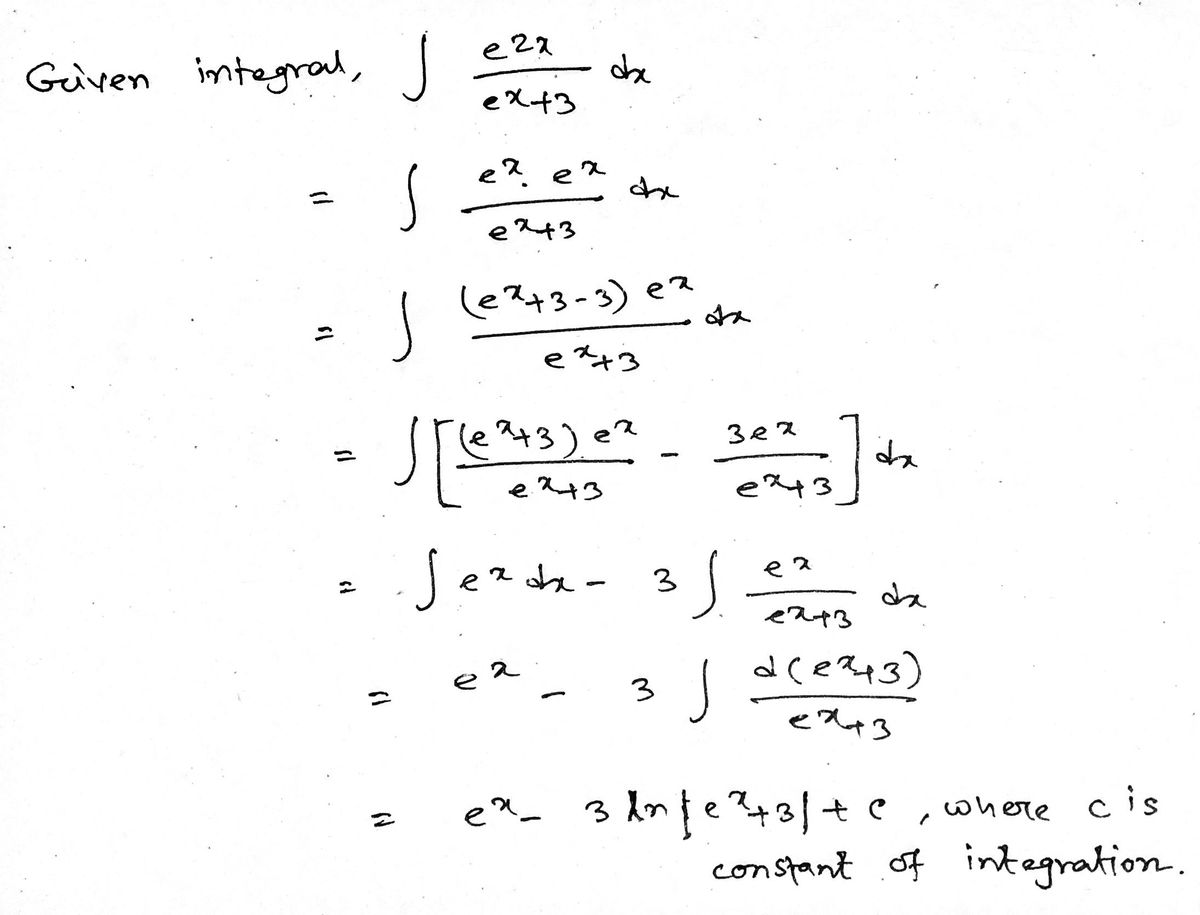 Given integral, ∫ e^{2x}/(e^x+3) dx
= ∫ (e^x. e^x)/(e^x+3) dx
= ∫ ((e^x+3-3) e^x)/(e^x+3) dx
= ∫ [ ((e^x+3) e^x)/(e^x+3) - 3e^x/(e^x+3) ] dx
= ∫ e^x dx - 3 ∫ e^x/(e^x+3) dx
= e^x - 3 ∫ d(e^x+3)/(e^x+3)
= e^x - 3 ln|e^x+3| + c, where c is
constant of integration.